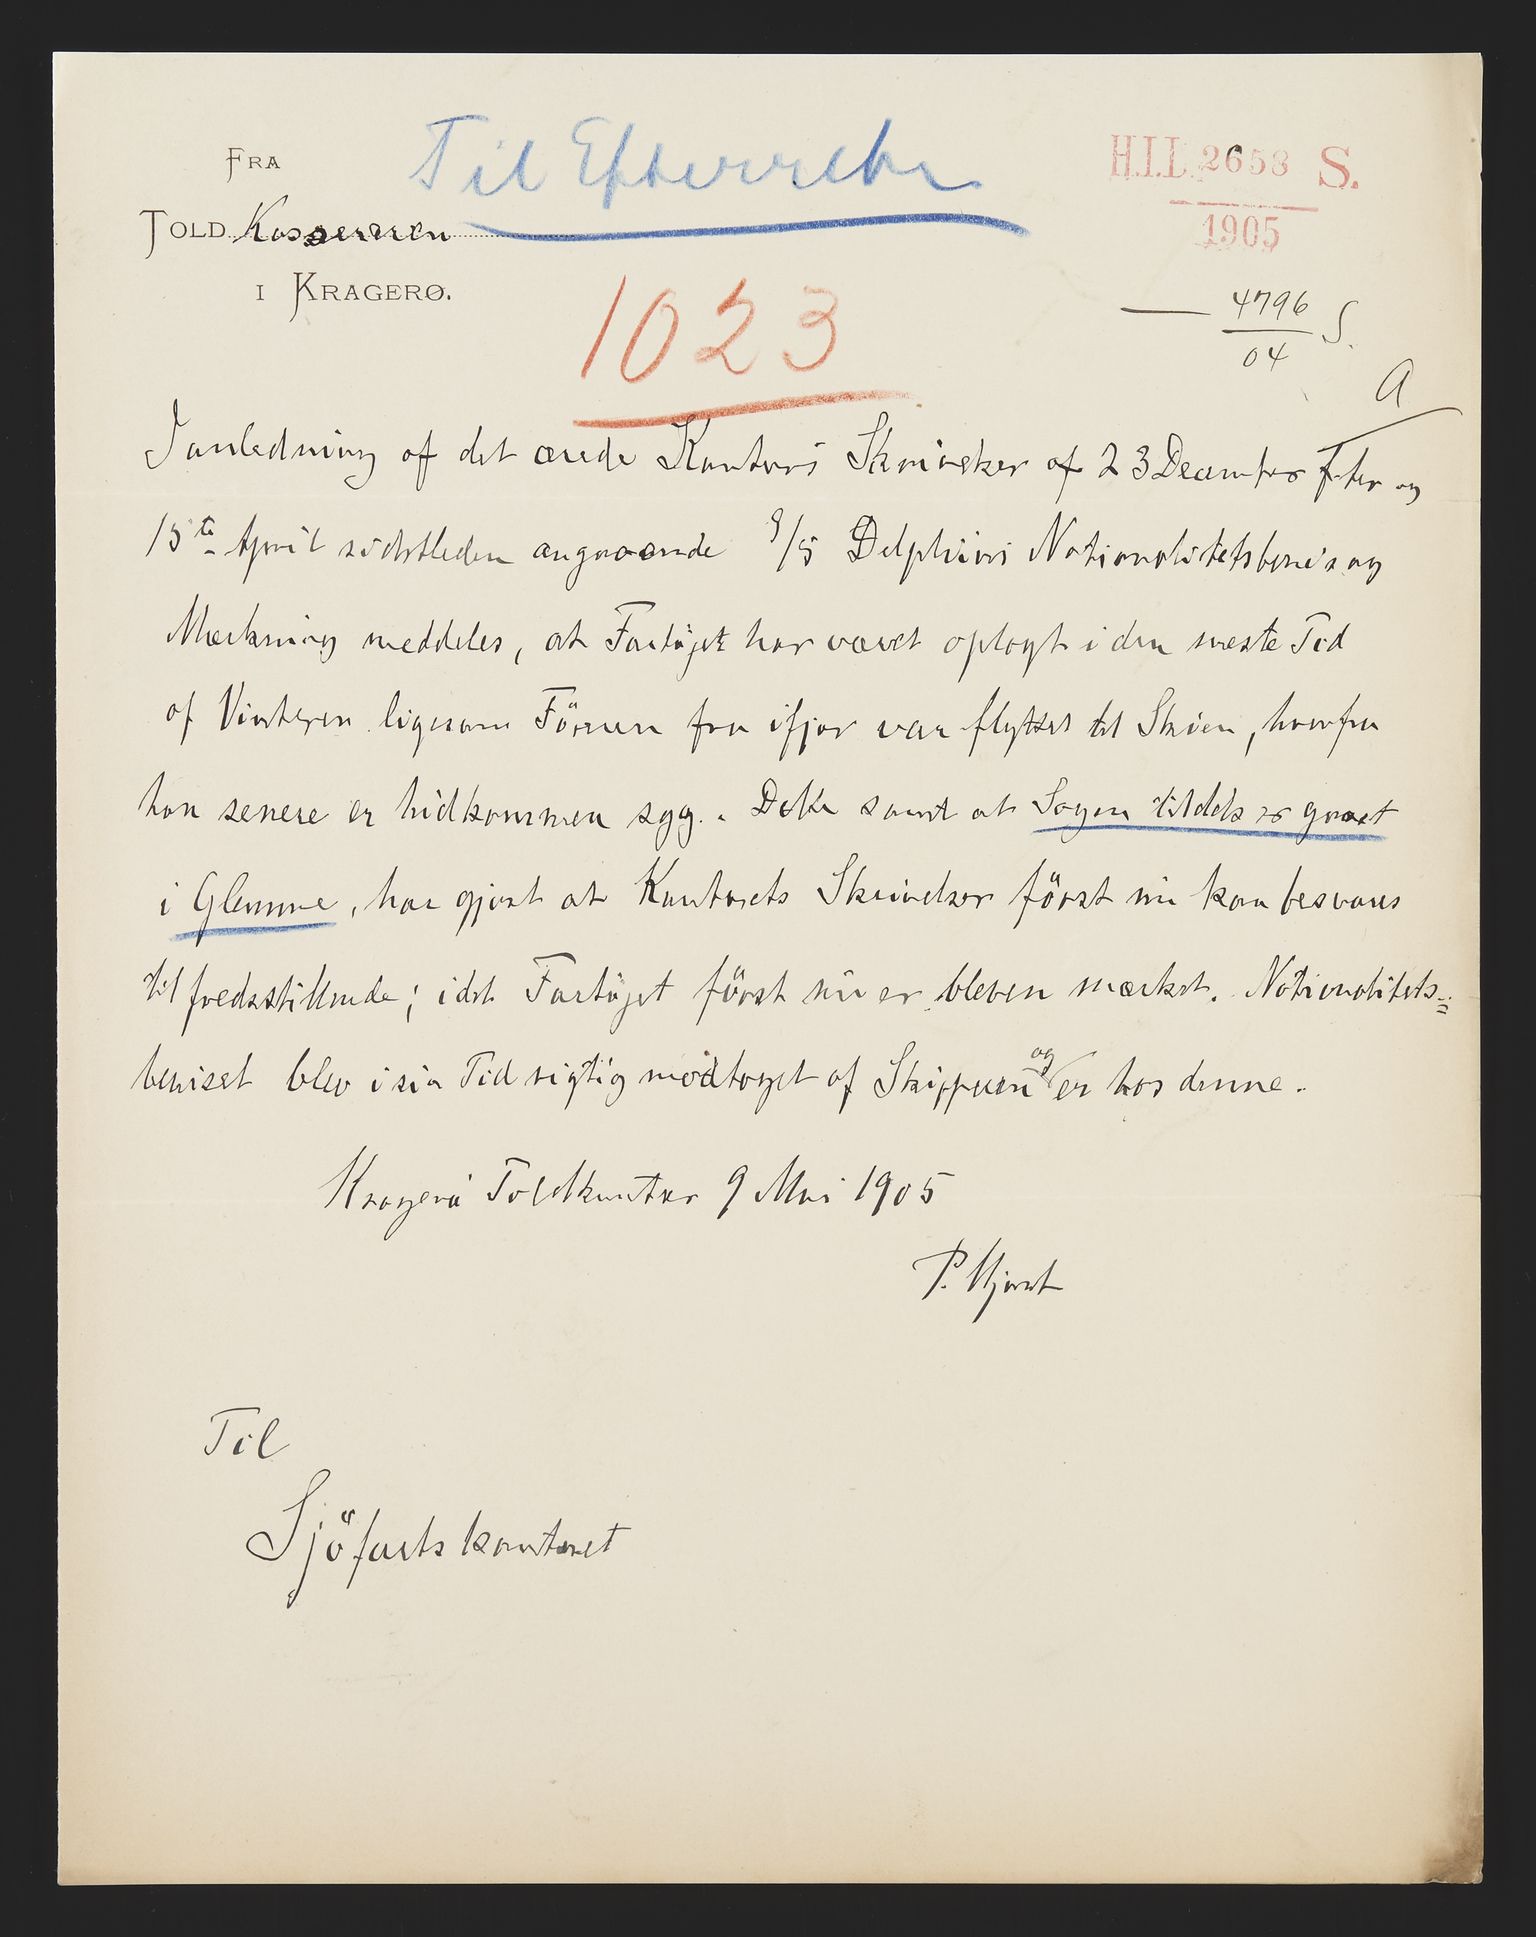 FRA
TOLD Kassereren
I KRAGERØ.
Til Efterretn
H.I.L. 2658 S.
1905
4796 S.
04
a
1023
I anledning af det ærede Kontors Skrivelser af 23 December og
15de April sidstleden angaaende Delphins Nationalitetsbevis og
Mærkning meddeles, at Fartöjet har været oplagt i den meste Tid
af Vinteren ligesom Föreren fra ifjor var flyttet til Skien, hvorfra
han senere er hidkommen syg. Dette samt at Sagen tildels er graaet
i Glemme, har gjort at Kontorets Skrivelser först nu kan besvares
tilfredsstillende; idet Fartöjet först nu er bleven mærket. Nationalitets=
beviset blev i sin Tid rigtig modtaget af Skipperen og er hos denne.
Kragerö Toldkontor 9 Mai 1905
P. Hjort
Til
Sjöfartskontoret